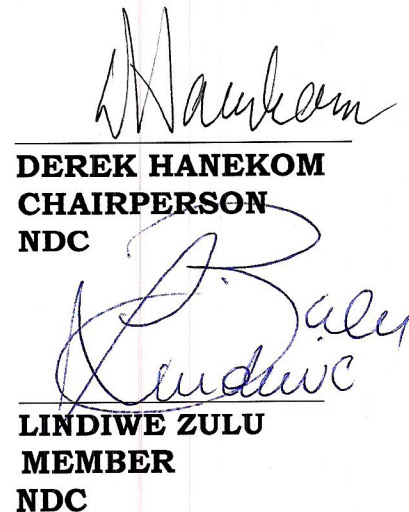 DHanekom
DEREK HANEKOM
CHAIRPERSON
NDC
Zulu
Lindiwe
LINDIWE ZULU
MEMBER
NDC